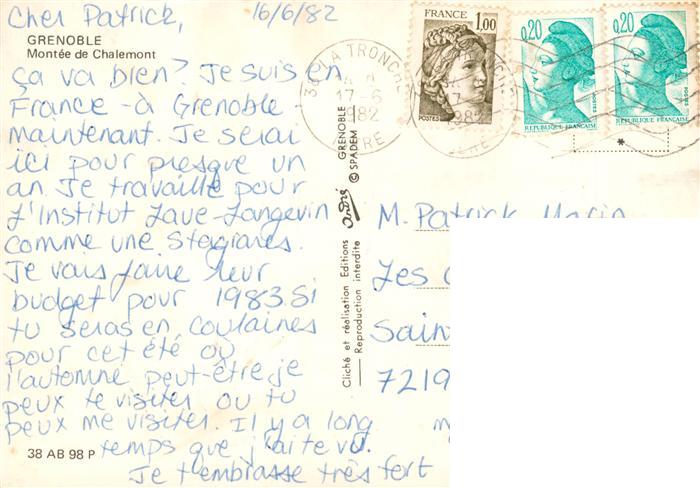 Cher Patrick, 16/6/82
GRENOBLE
Montée de Chalemont
ça va bien? Je suis en
France - à Grenoble
maintenant. Je serai
ici pour presque un
an Je travaille pour
l'Institut Laue-Langevin
comme une stagiares.
Je vais faire leur
budget pour 1983. Si
tu seras en coulaines
pour cet été ou
l'automne peut-être je
peux te visiter ou tu
peux me visiter. Il y a long
temps que j'ai te vu.
Je t'embrasse très fort
38 AB 98 P
GRENOBLE
© SPADEM
andré
Cliché et réalisation Editions
Reproduction interdite
FRANCE
1,00
POSTES
0,20
POSTES
REPUBLIQUE FRANÇAISE
0,20
POSTES
REPUBLIQUE FRANÇAISE
38 LA TRONCHE
17-6
1982
ISERE
*
M. Patrick
Les
Sain
7219